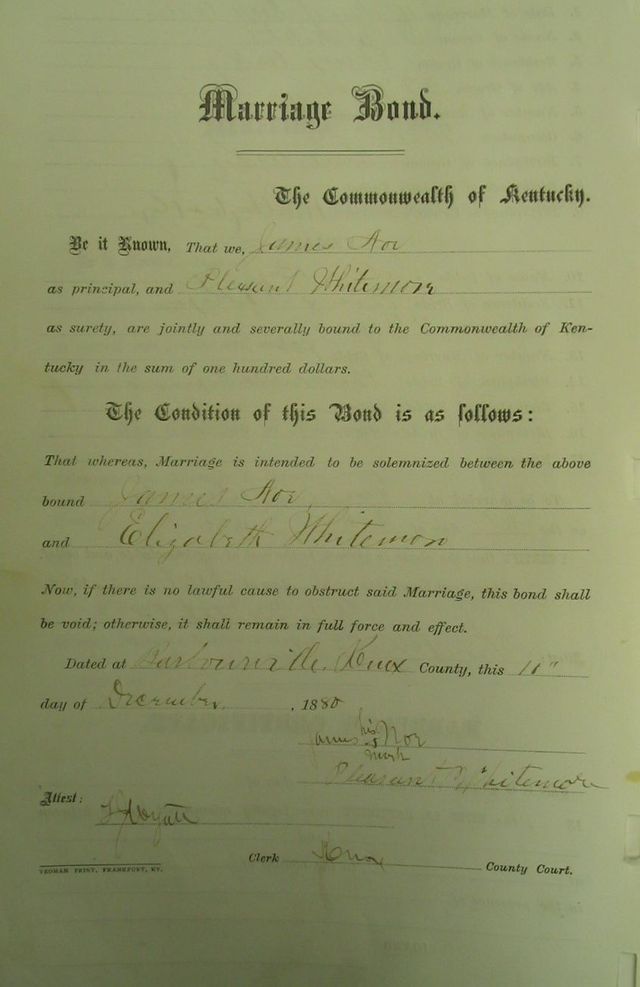 Marriage Bond.
The Commonwealth of Kentucky.
Be it Known, That we, James Noe
as principal, and Pleasant Whitemore
as surety, are jointly and severally bound to the Commonwealth of Ken-
tucky in the sum of one hundred dollars.
The Condition of this Bond is as follows:
That whereas, Marriage is intended to be solemnized between the above
bound James Noe
and Elizabeth Whitemore
Now, if there is no lawful cause to obstruct said Marriage, this bond shall
be void; otherwise, it shall remain in full force and effect.
Dated at Barbourville, Knox County, this
day of December, 1880
his
James Noe
mark
Pleasant Whitemore
Attest:
Wyatt
Clerk Knox County Court.
YEOMAN PRINT, FRANKFORT, KY.